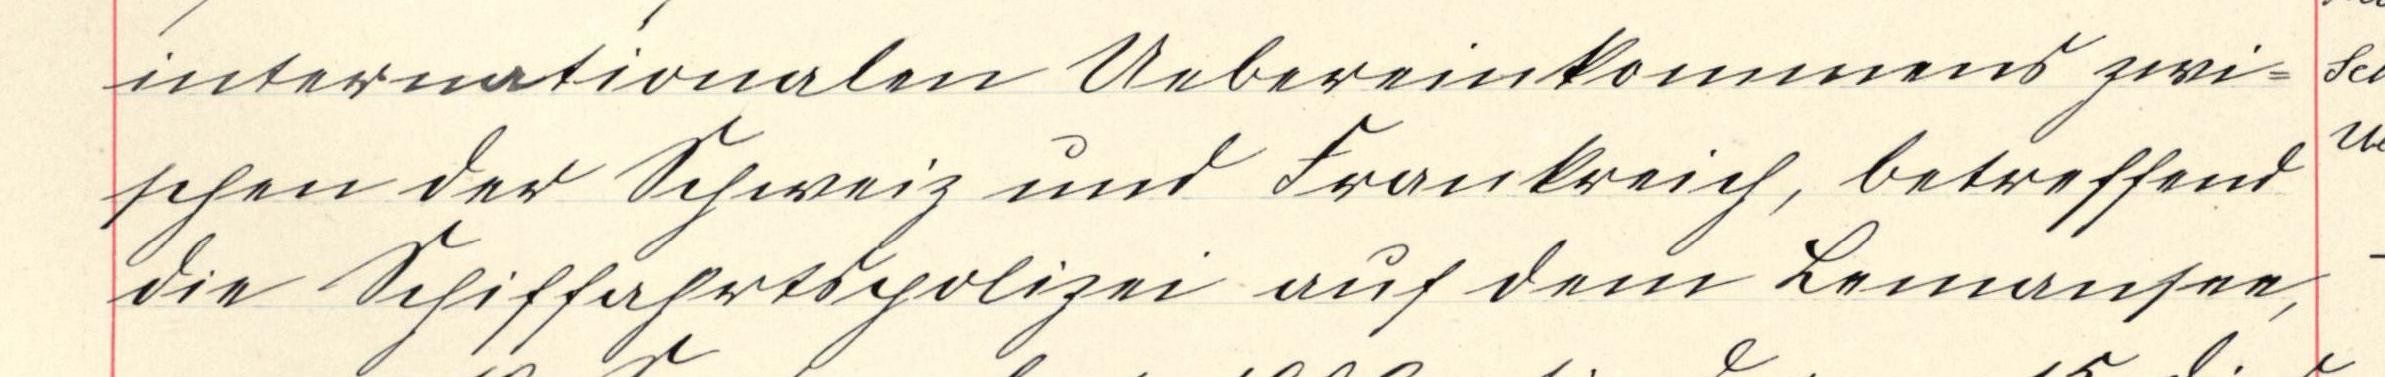 internationalen Uebereinkommens zwi=
schen der Schweiz und Frankreich, betreffend
die Schiffahrtspolizei auf dem Lemansee,